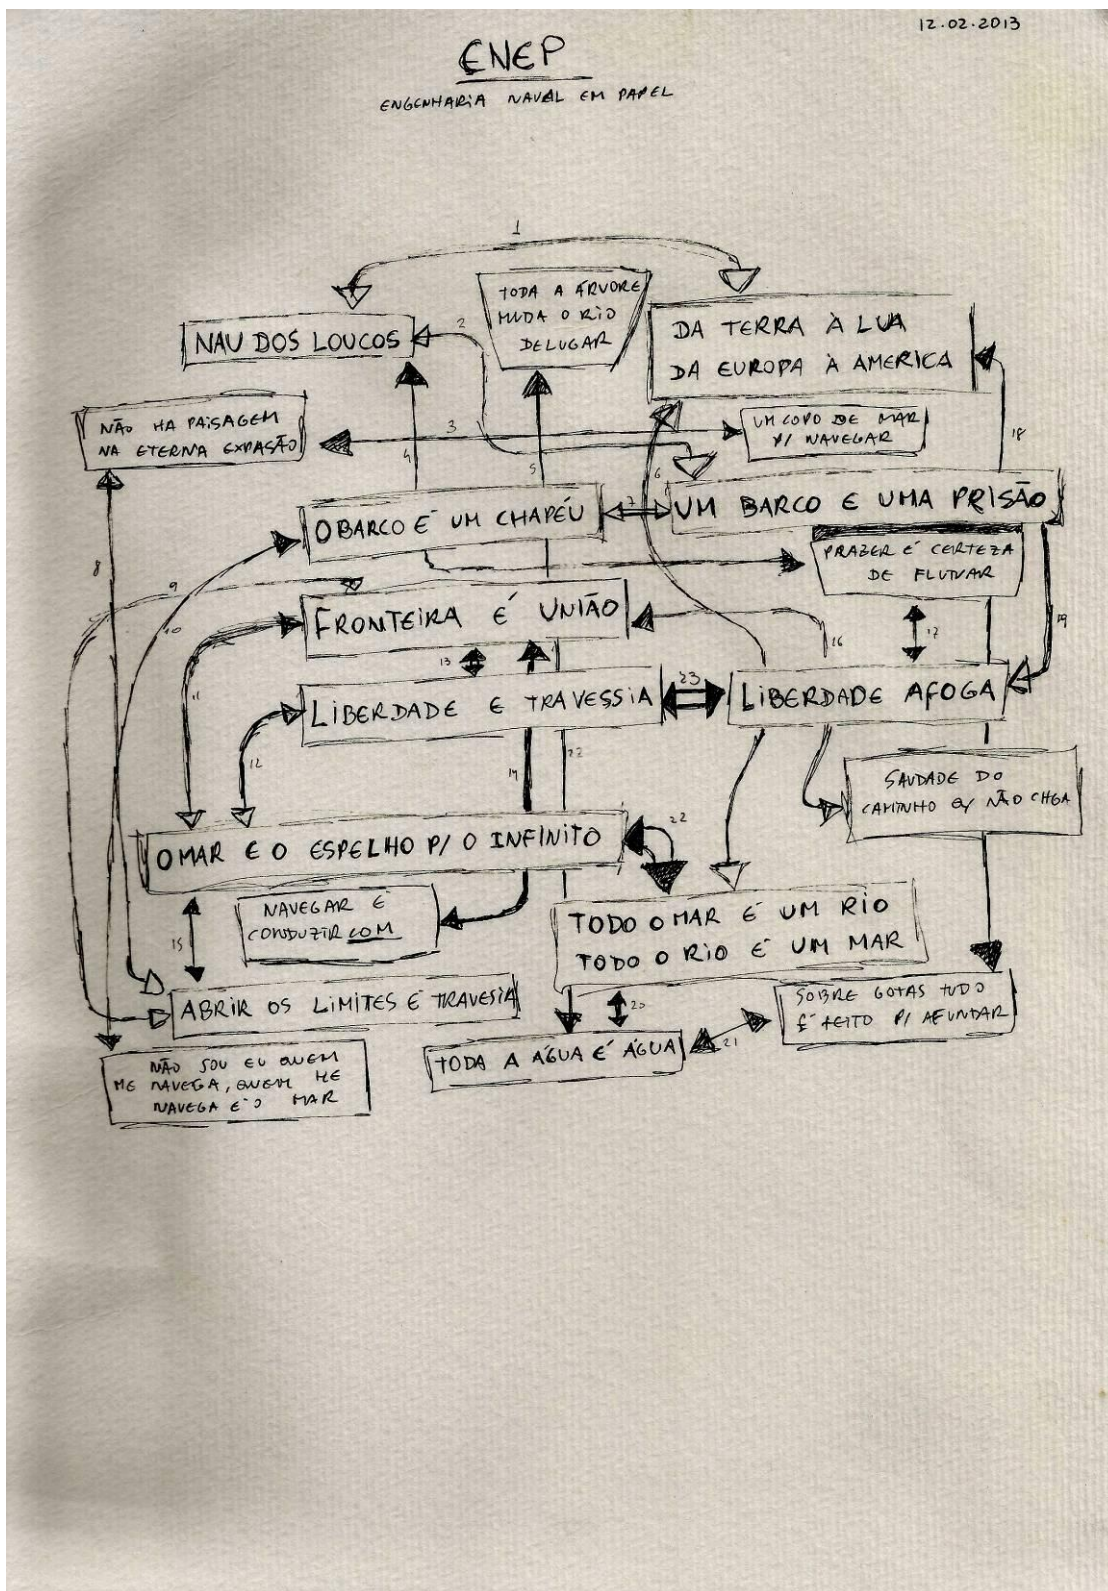 12.02.2013
ENEP
ENGENHARIA NAVAL EM PAPEL
1
TODA A ÁRVORE
MUDA O RIO
DELUGAR
NAU DOS LOUCOS
2
DA TERRA À LUA
DA EUROPA À AMERICA
NÃO HA PAISAGEM
NA ETERNA EXPASÃO
3
UM COPO DE MAR
P/ NAVEGAR
18
4
5
6
O BARCO É UM CHAPÉU
7
UM BARCO E UMA PRISÃO
PRAZER É CERTEZA
DE FLUTUAR
8
9
10
FRONTEIRA É UNIÃO
16
17
19
11
13
LIBERDADE E TRAVESSIA
23
LIBERDADE AFOGA
12
14
22
SAUDADE DO
CAMINHO Q/ NÃO CHGA
O MAR E O ESPELHO P/ O INFINITO
22
NAVEGAR É
CONDUZIR COM
15
TODO O MAR É UM RIO
TODO O RIO É UM MAR
ABRIR OS LIMITES E TRAVESIA
20
SOBRE GOTAS TUDO
É FEITO P/ AFUNDAR
TODA A ÁGUA É ÁGUA
21
NÃO SOU EU QUEM
ME NAVEGA, QUEM ME
NAVEGA É O MAR